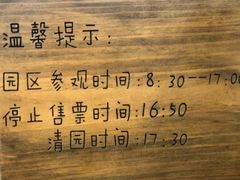 温馨提示:
园区参观时间:8:30--17:00
停止售票时间:16:50
清园时间:17:30